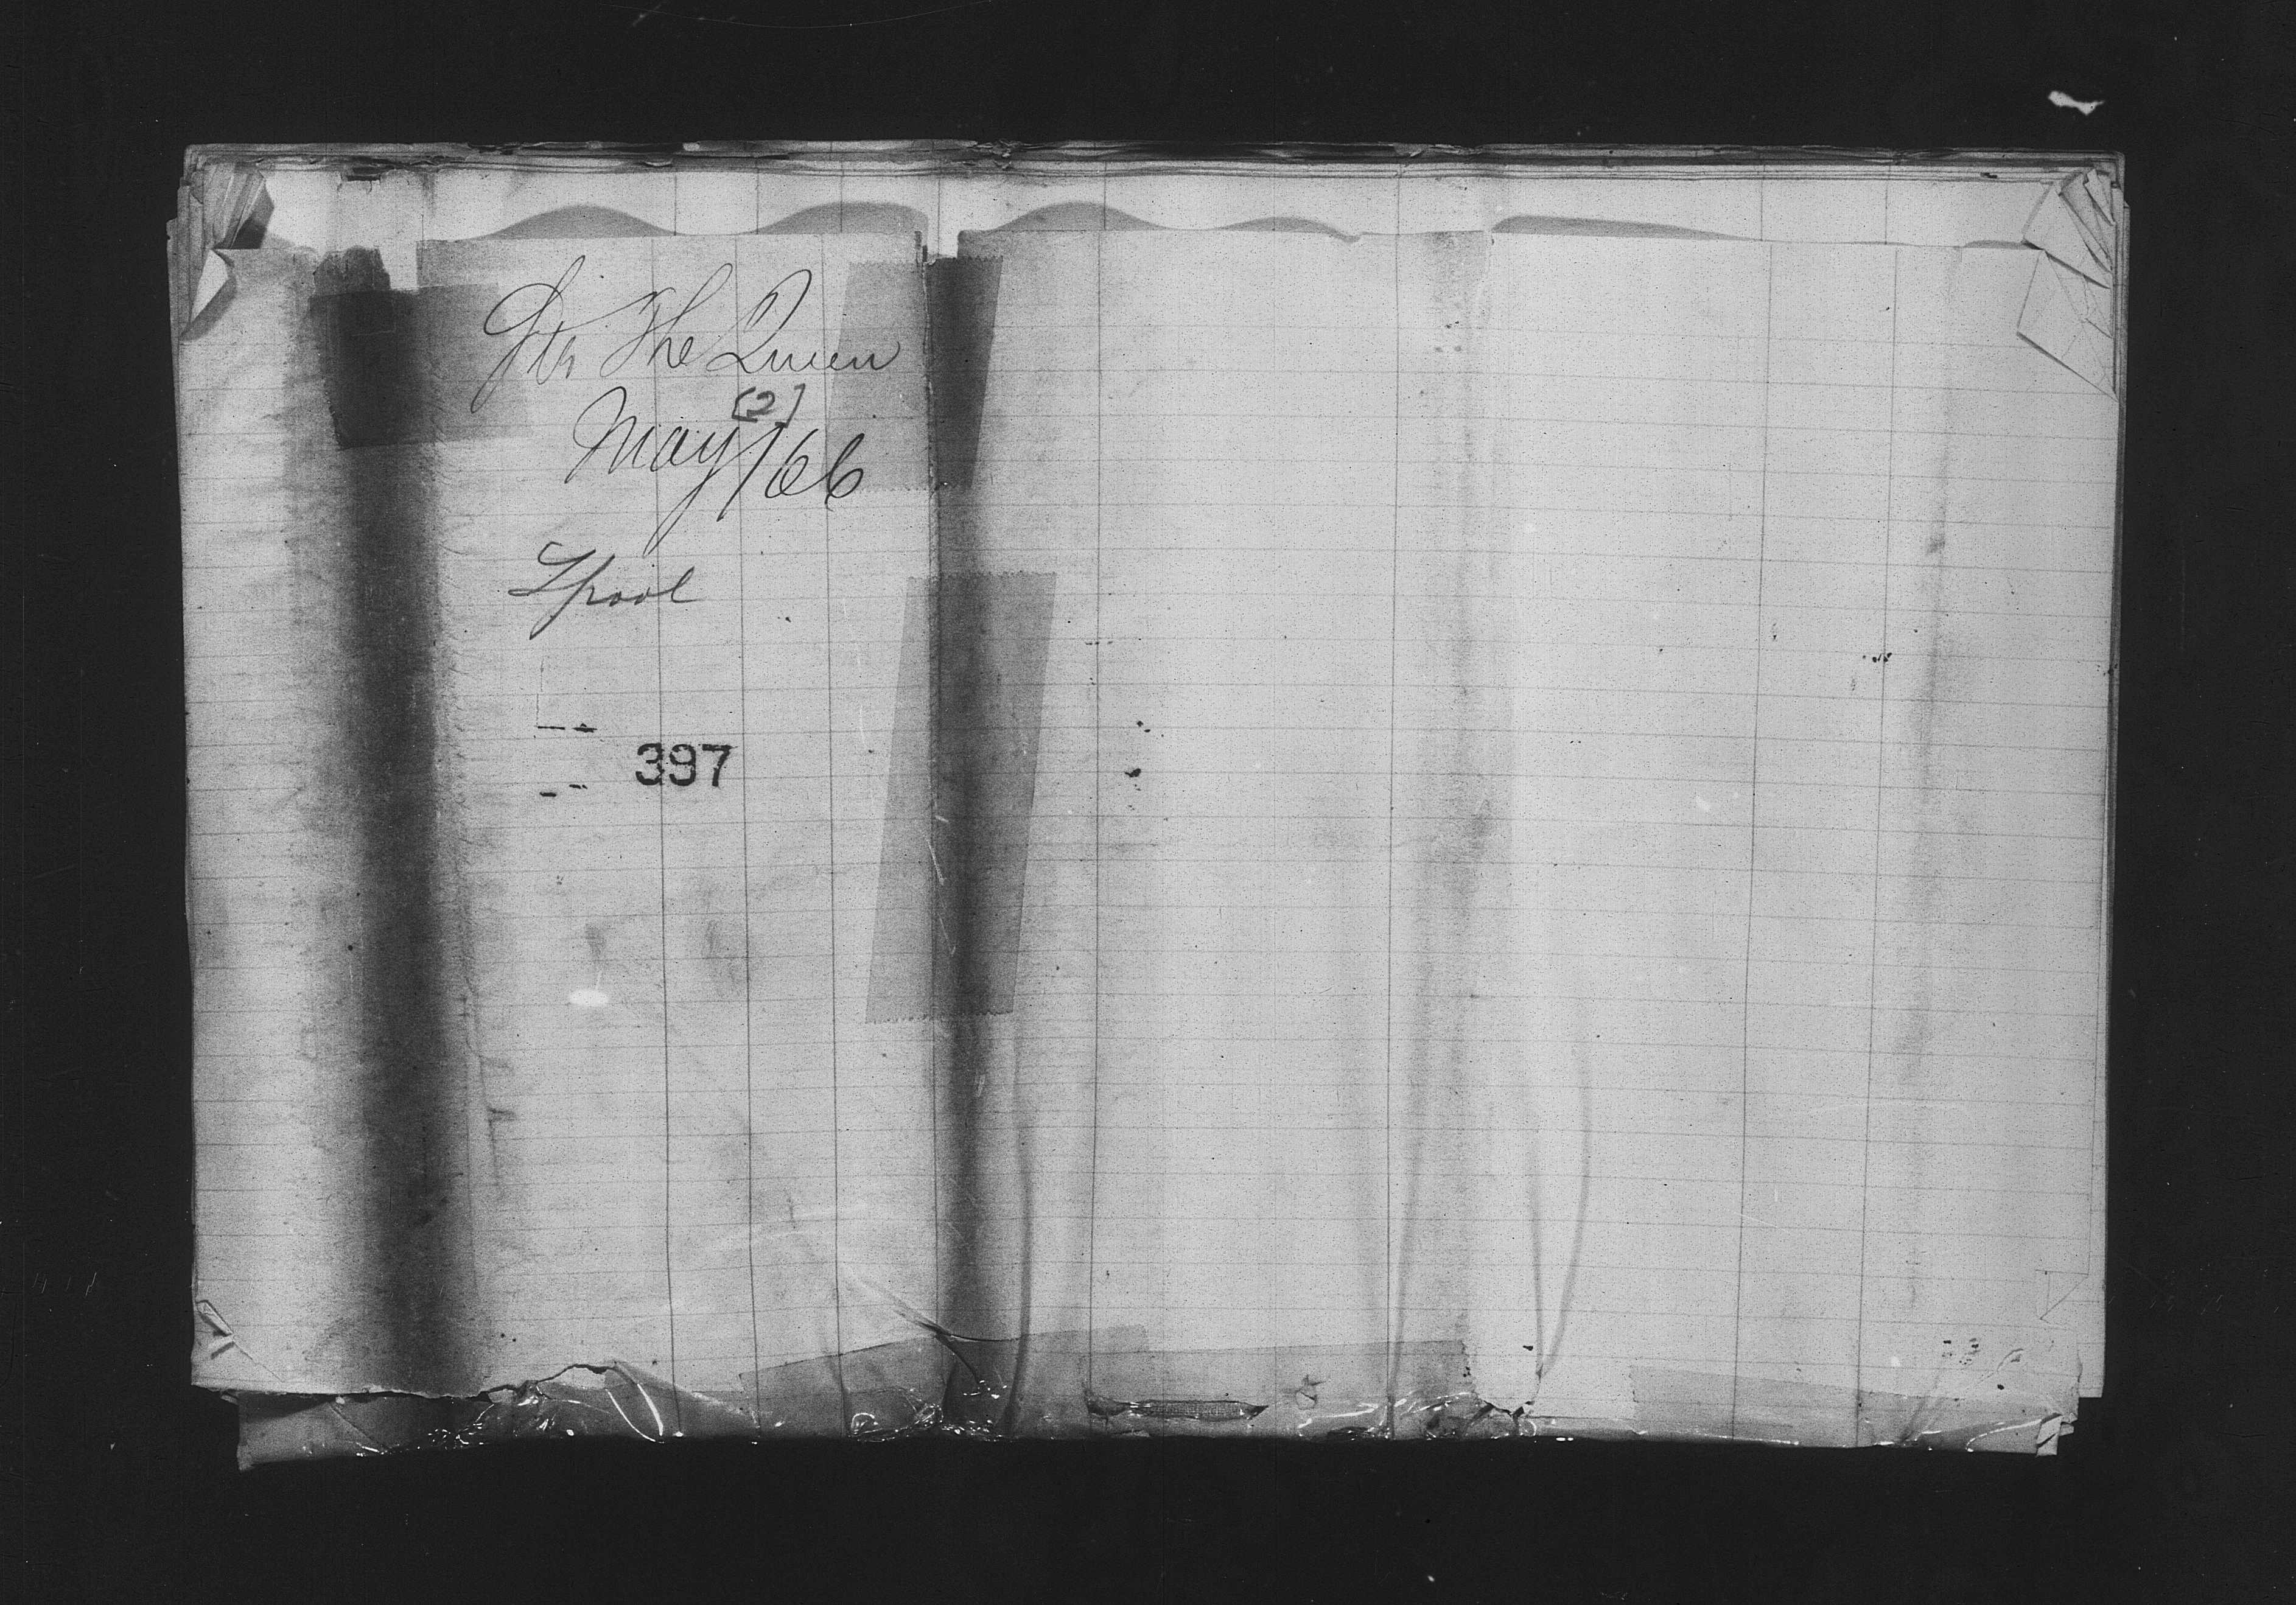 Str The Queen
[2]
May/66
Lpool
397